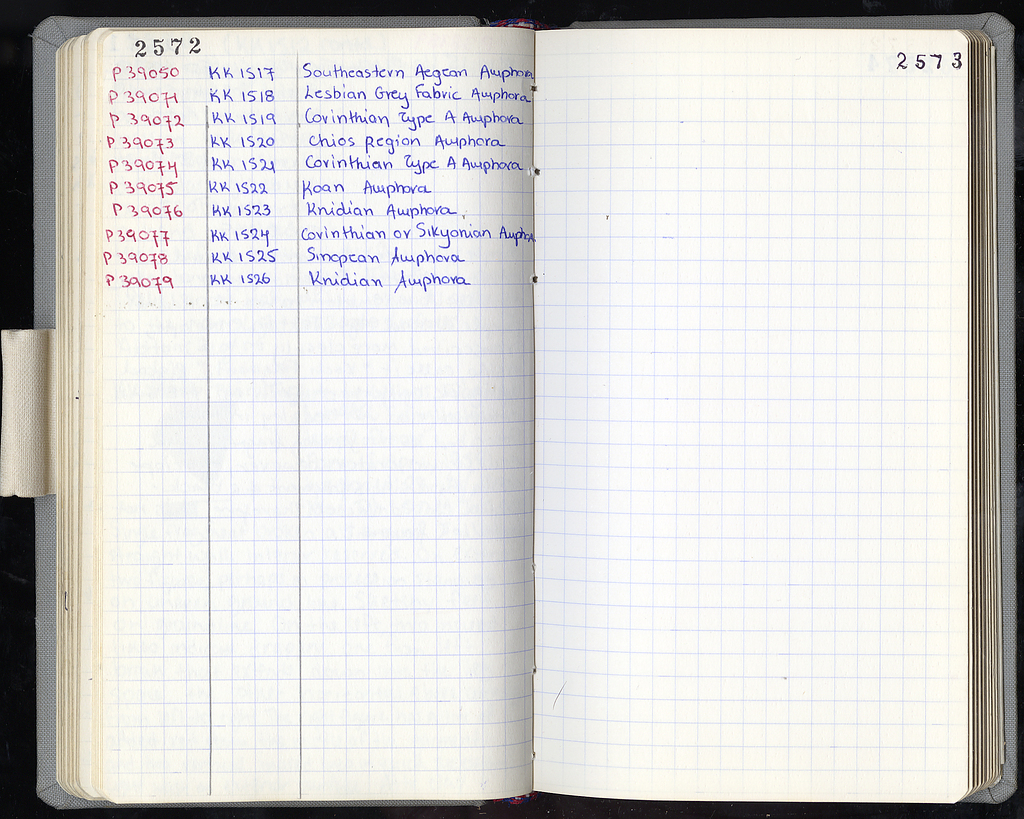 2572
P 39050 KK 1517 Southeastern Aegean Amphora
P 39071 KK 1518 Lesbian Grey Fabric Amphora
P 39072 KK 1519 Corinthian Type A Amphora
P 39073 KK 1520 Chios Region Amphora
P 39074 KK 1521 Corinthian Type A Amphora
P 39075 KK 1522 Koan Amphora
P 39076 KK 1523 Knidian Amphora
P 39077 KK 1524 Corinthian or Sikyonian Amphora
P 39078 KK 1525 Sinopean Amphora
P 39079 KK 1526 Knidian Amphora
2573